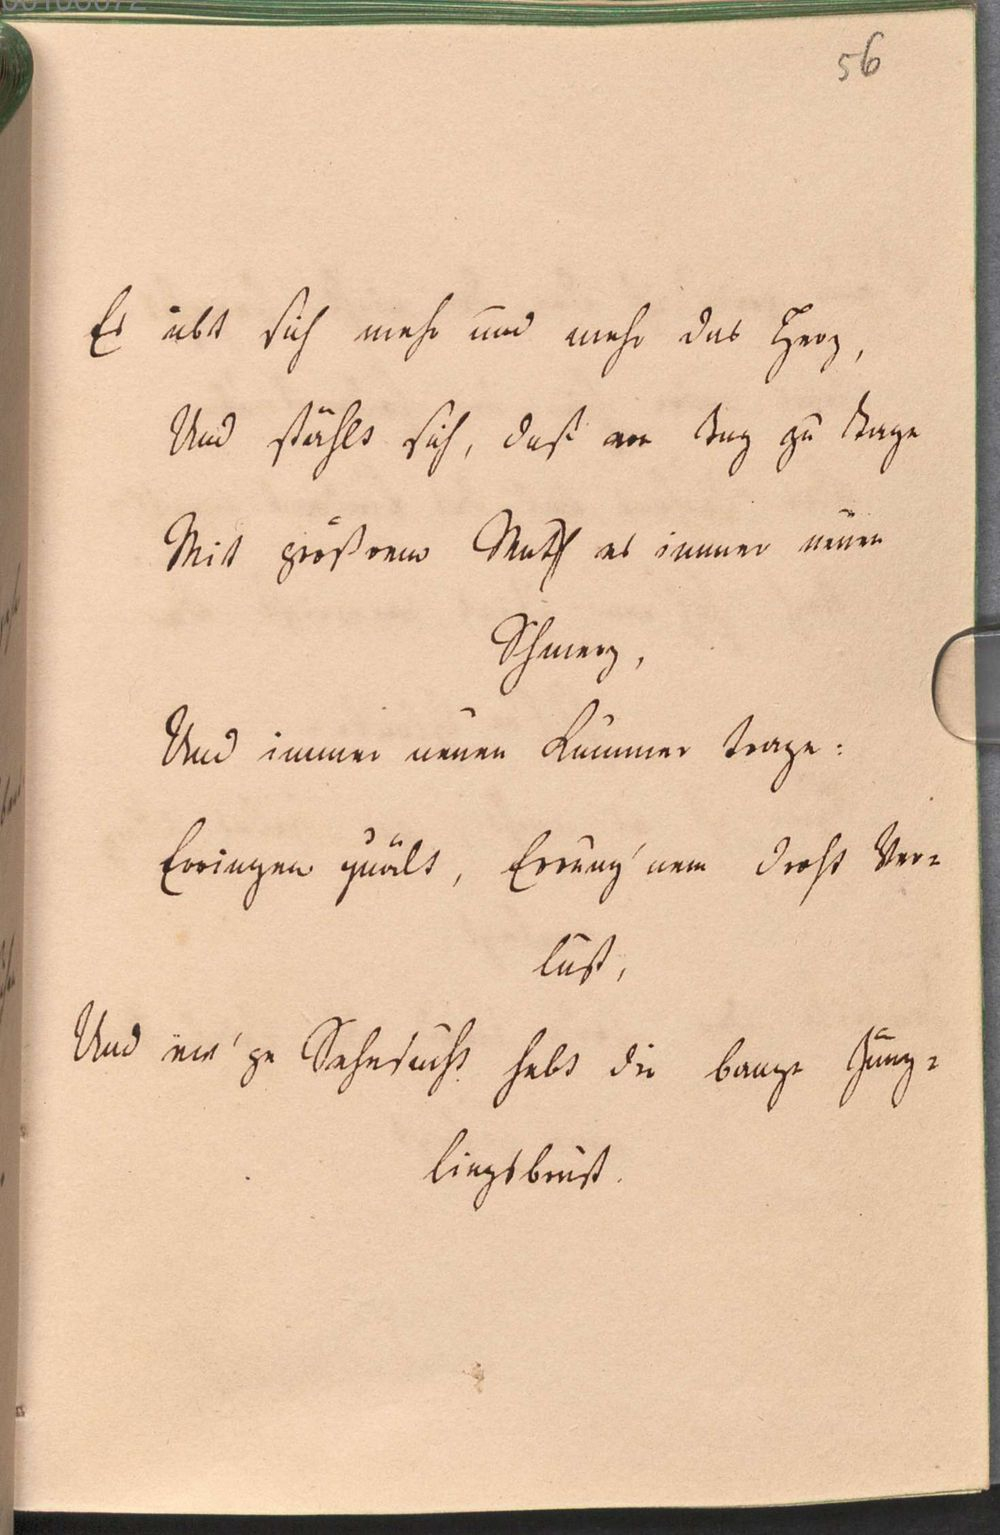 56
Es übt sich mehr und mehr das Herz,
Und stählt sich, daß von Tag zu Tage
Mit größrem Muth es immer neuen
Schmerz,
Und immer neuen Kummer trage:
Erringen quält, Errung'nem droht Ver=
lust,
Und ew'ge Sehnsucht hebt die bange Jüng=
lingsbrust.